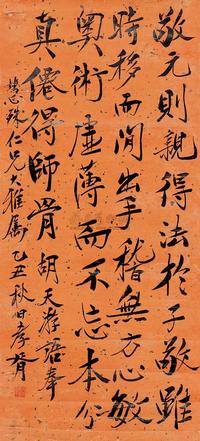 敬元則親得法於子敬雖
時移而間出手稽無方心敏
奧術虛薄而不忘本公
真儒得師骨胡天游語奉
慧珠仁兄雅屬乙丑秋日孝胥